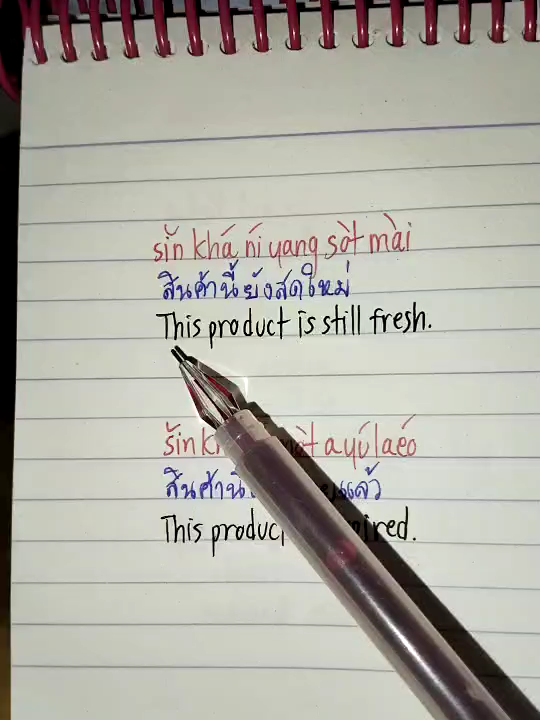 sĭn khá ní yang sòt mài
สินค้านี้ยังสดใหม่
This product is still fresh.
sĭn a yú laéo
สินค้านี้ แล้ว
This